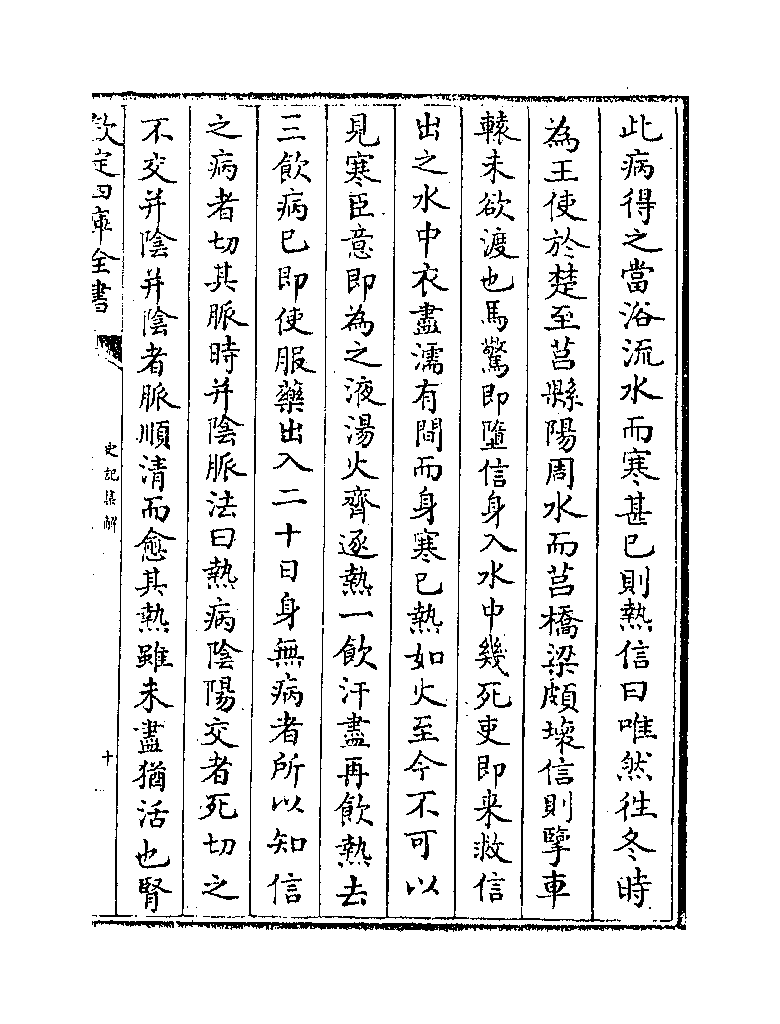 此病得之當浴流水而寒甚已則熱信曰唯然徃冬時
為王使於楚至莒縣陽周水而莒橋梁頗壞信則擥車
轅未欲渡也馬驚即墮信身入水中幾死吏即来救信
出之水中衣盡濡有間而身寒已熱如火至今不可以
見寒臣意即為之液湯火齊逐熱一飲汗盡再飲熱去
三飲病已即使服藥出入二十日身無病者所以知信
之病者切其脈時并陰脈法曰熱病陰陽交者死切之
不交并陰并陰者脈順清而愈其熱雖未盡猶活也腎
欽定四庫全書
史記集解
十